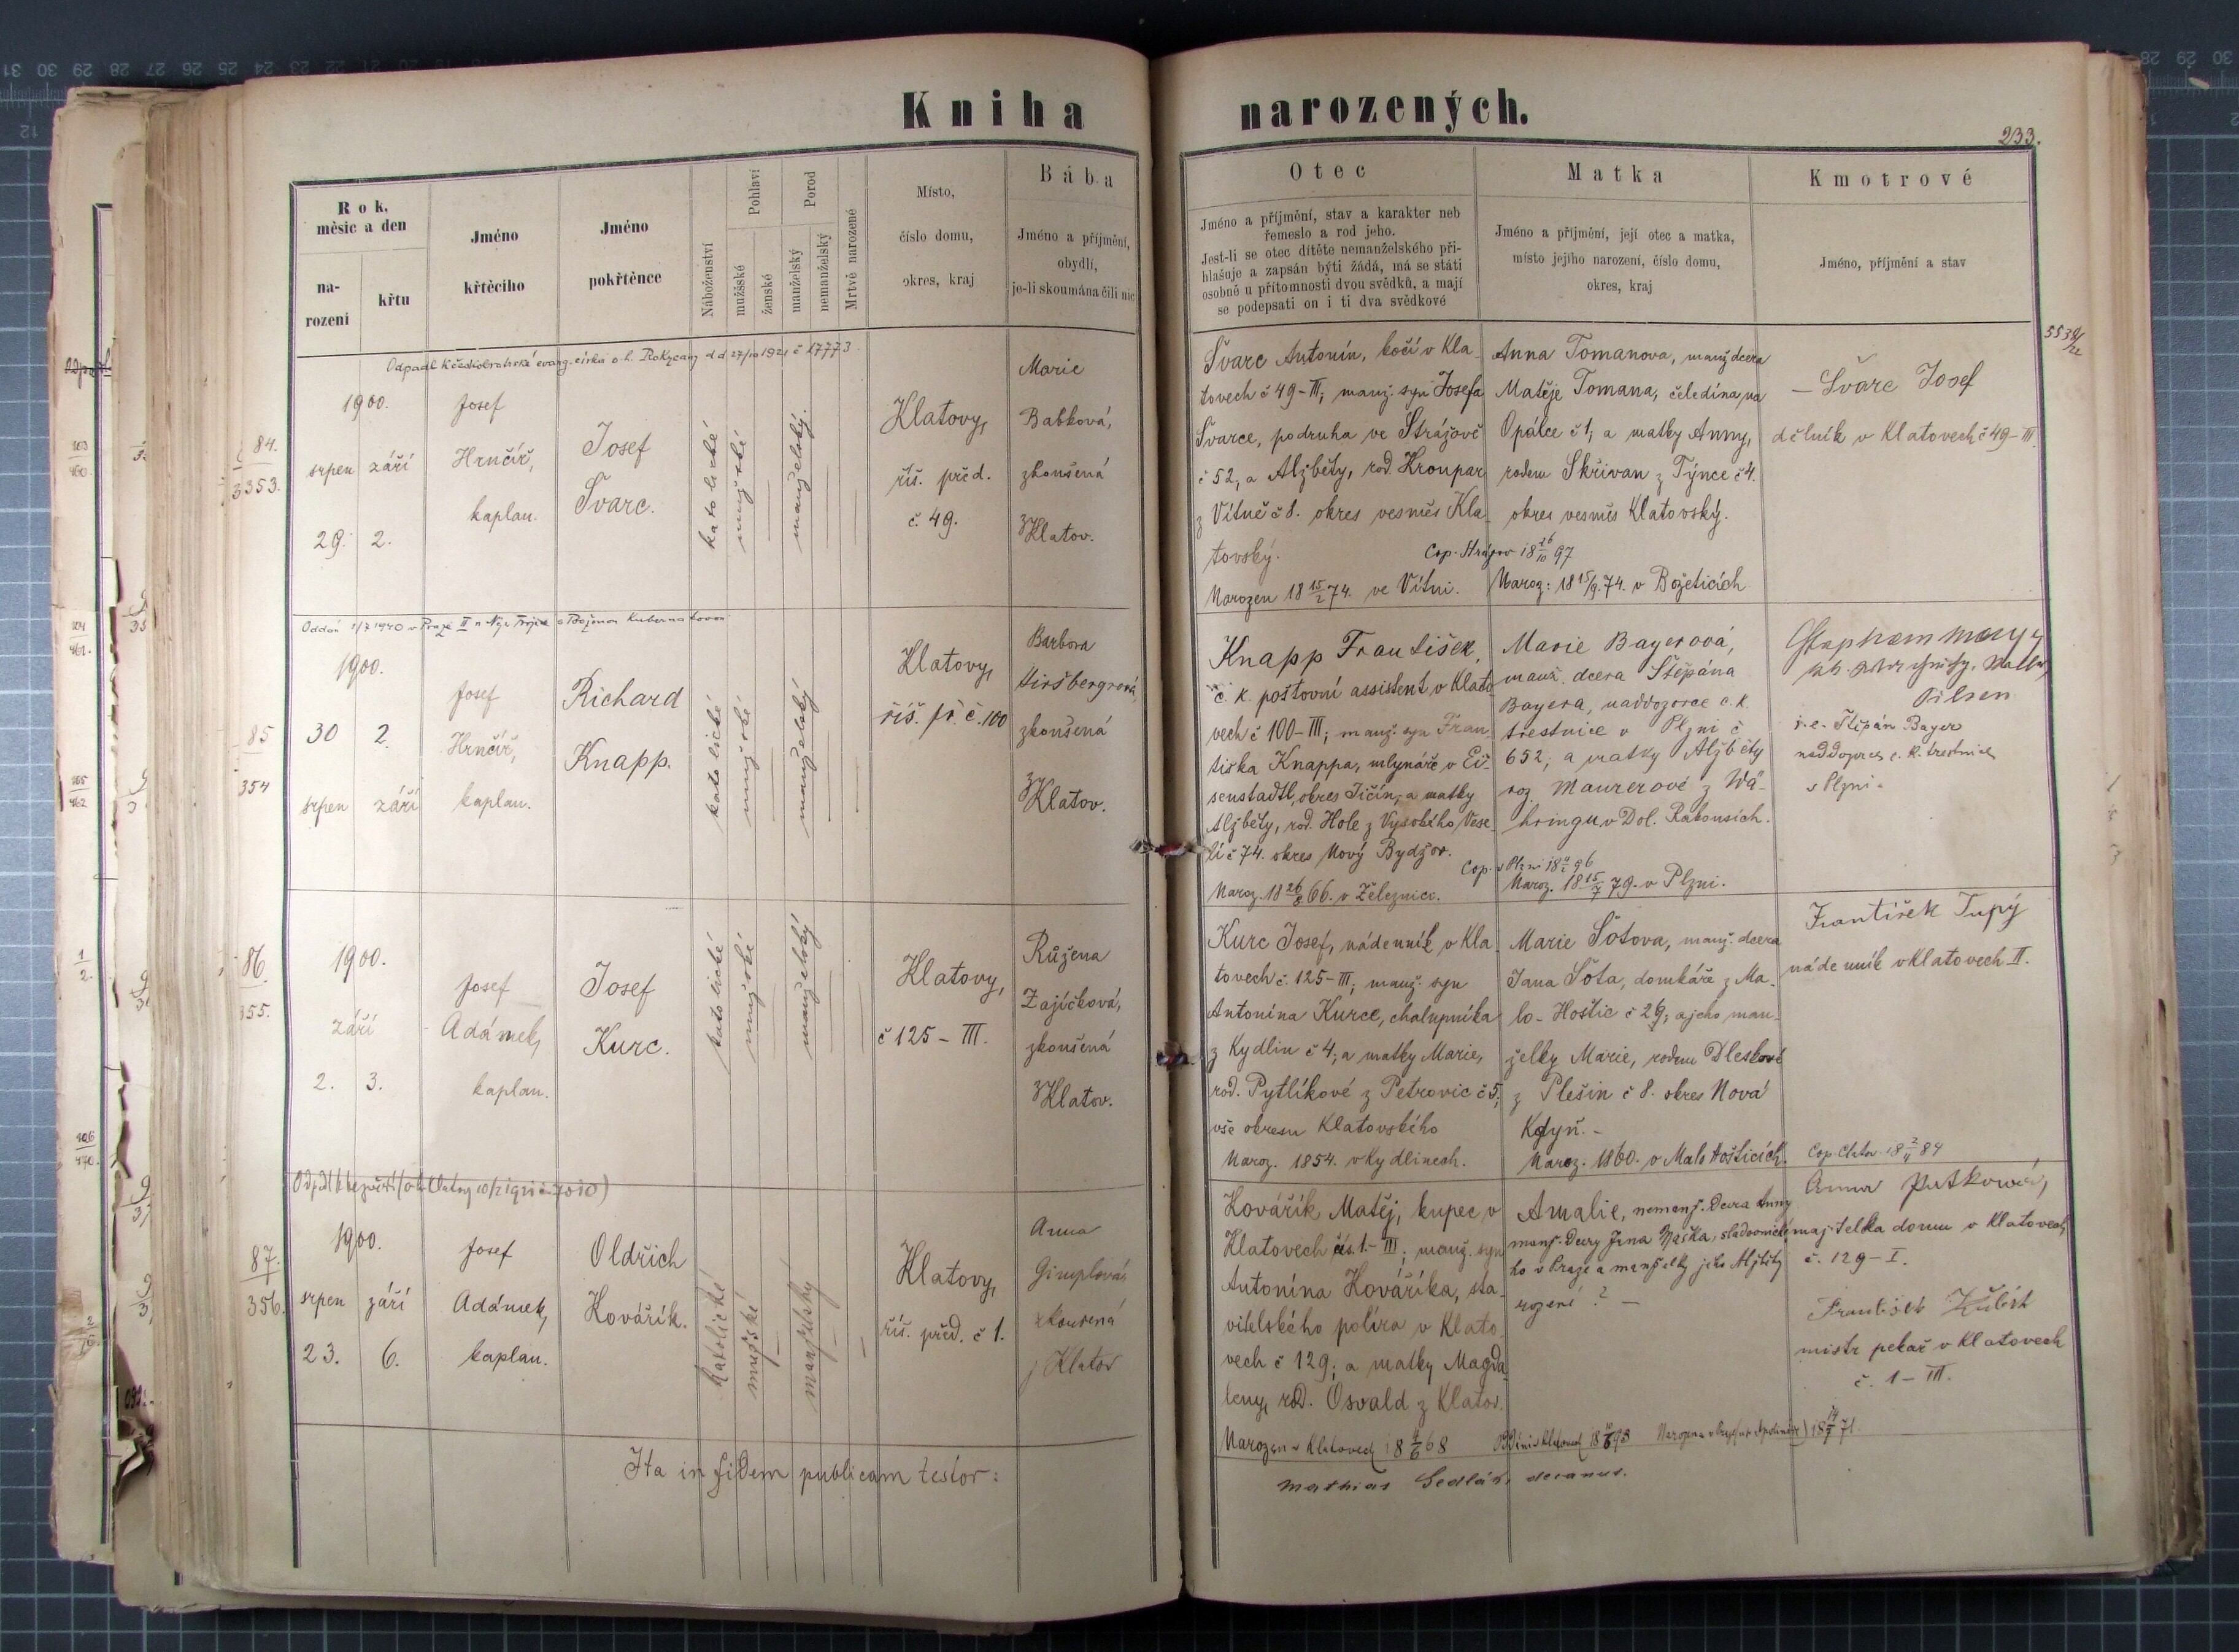 Kniha narozených.
233.
Rok, měsíc a den
narození
křtu
Jméno křtěcího
Jméno pokřtěnce
Náboženství
Pohlaví
mužské
ženské
Porod
manželský
nemanželský
Mrtvě narozené
Místo,
číslo domu,
okres, kraj
Bába
Jméno a příjmění,
obydlí,
je-li skoumána čili nic
Otec
Jméno a příjmění, stav a karakter neb
řemeslo a rod jeho.
Jest-li se otec dítěte nemanželského při-
hlašuje a zapsán býti žádá, má se státi
osobně u přítomnosti dvou svědků, a mají
se podepsati on i ti dva svědkové
Matka
Jméno a příjmění, její otec a matka,
místo jejího narození, číslo domu,
okres, kraj
Kmotrové
Jméno, příjmění a stav
Odpadl k českobratrské evang. církvi o. h. Rokycany dd 27/10 1921 č 17773
84.
3353.
1900.
srpen září
29. 2.
Josef
Hrnčíř,
kaplan.
Josef
Švarc.
katolické
mužské
manželský.
Klatovy,
říš. před.
č. 49.
Marie
Babková,
zkoušená
z Klatov.
Švarc Antonín, kočí v Kla-
tovech č 49-III; manž. syn Josefa
Švarce, podruha ve Strážově
č 52, a Alžběty, rod. Kroupar
z Vítně č 8. okres vesměs Kla-
tovský.
Narozen 18 15/2 74. ve Vítni.
Anna Tomanova, manž dcera
Matěje Tomana, čeledína na
Opálce č 1, a matky Anny,
rodem Skřivan z Týnce č 4.
okres vesměs Klatovský.
Cop. Strážov 18 26/10 97
Naroz: 18 15/9. 74. v Božeticích
– Švarc Josef
dělník v Klatovech č 49-III
Oddán 1/7 1940 v Praze II
85
354
1900.
30 2.
srpen září
Josef
Hrnčíř,
kaplan.
Richard
Knapp.
katolické
mužské
manželský
Klatovy,
říš. př. č. 100
Barbora
Hiršbergrová,
zkoušená
z Klatov.
Knapp František,
c. k. poštovní assistent v Klato-
vech č 100-III; manž. syn Fran-
tiska Knappa, mlynáře v Ei-
senstadtl, okres Jičín, a matky
Alžběty, rod. Hole z Vysokého Vese-
lí č 74. okres Nový Bydžov.
Naroz. 18 26/8 66. v Železnici.
Marie Bayerová,
manž. dcera Štěpána
Bayera, naddozorce c. k.
trestnice v Plzni č
652; a matky Alžběty
roz. Maurerové z Wä-
hringu, v Dol. Rakousích.
Naroz. 18 15/7 79. v Plzni.
Pilsen
i. e. Štěpán Bayer
naddozorce c. k. trestnice
v Plzni.
86.
355.
1900.
září
2. 3.
Josef
Adámek,
kaplan.
Josef
Kurc.
katolické
mužské
manželský
Klatovy,
č 125 – III.
Růžena
Zajíčková,
zkoušená
z Klatov.
Kurc Josef, nádenník v Kla-
tovech č. 125-III; manž. syn
Antonína Kurce, chalupníka
z Kydlin č 4; a matky Marie,
rod. Pytlíkové z Petrovic č 5;
vše okresu Klatovského
Naroz. 1854. v Kydlinech.
Marie Šotova, manž. dcera
Jana Šota, domkáře z Ma-
lo-Hoštic č 29; a jeho man-
želky Marie, rodem Dleskové
z Plešin č 8. okres Nová
Kdyň. –
Naroz. 1860. v Malohošticích.
František Tupý
nádenník v Klatovech II.
Cop. Clatov. 18 2/11 84
87.
356.
1900.
srpen září
23. 6.
Josef
Adámek,
kaplan.
Oldřich
Kovářík.
katolické
mužské
manželský
Klatovy,
říš. před. č 1.
Anna
Gimplová,
zkoušená
z Klatov
Kovářík Matěj, kupec v
Klatovech čís. 1.-III; manž. syn
Antonína Kováříka, sta-
vitelského políra v Klato-
vech č 129; a matky Magda-
leny, rod. Osvald z Klatov.
Narozen v Klatovech
Amalie, nemanž. dcera Anny
manž. dcery Jana Maška, sladovnické-
ho v Praze a manželky jeho Alžběty
rozené ? –
Anna Putkova,
majitelka domu v Klatovech
č. 129 – I.
František
mistr pekař v Klatovech
č. 1 – III.
Ita in fidem publicam testor:
Mathias Sedlák, decanus.